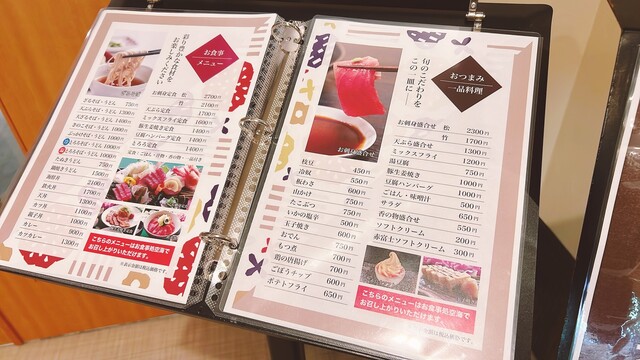 彩り豊かな食材を
お楽しみください
お食事
メニュー
お刺身定食 松 2700円
竹 2100円
天ぷら定食 1700円
ミックスフライ定食 1600円
豚生姜焼き定食 1400円
豆腐ハンバーグ定食 1400円
とろろ定食
ざるそば・うどん 750円
天ざるそば・うどん
きのこそば・うどん
とろろそば・うどん
たぬきうどん 750円
鍋焼きうどん 1500円
海鮮丼 2100円
鉄火丼 1700円
天丼
カツ丼 1100円
親子丼
カレー 900円
カツカレー 1300円
こちらのメニューはお食事処空海で
お召し上がりいただけます。
旬のこだわりを
この一皿に――
おつまみ
一品料理
お刺身盛合せ
お刺身盛合せ 松 2300円
竹 1700円
天ぷら盛合せ 1300円
ミックスフライ 1200円
湯豆腐 750円
豚生姜焼き 1000円
豆腐ハンバーグ 1000円
ごはん・味噌汁
サラダ 450円
香の物盛合せ 650円
ソフトクリーム 550円
赤富士ソフトクリーム 300円
枝豆 450円
冷奴 550円
板わさ 550円
山かけ 750円
たこぶつ 750円
いかの塩辛 500円
玉子焼き 600円
おでん 600円
もつ煮 700円
鶏の唐揚げ 700円
ごぼうチップ 600円
ポテトフライ 650円
こちらのメニューはお食事処空海で
お召し上がりいただけます。